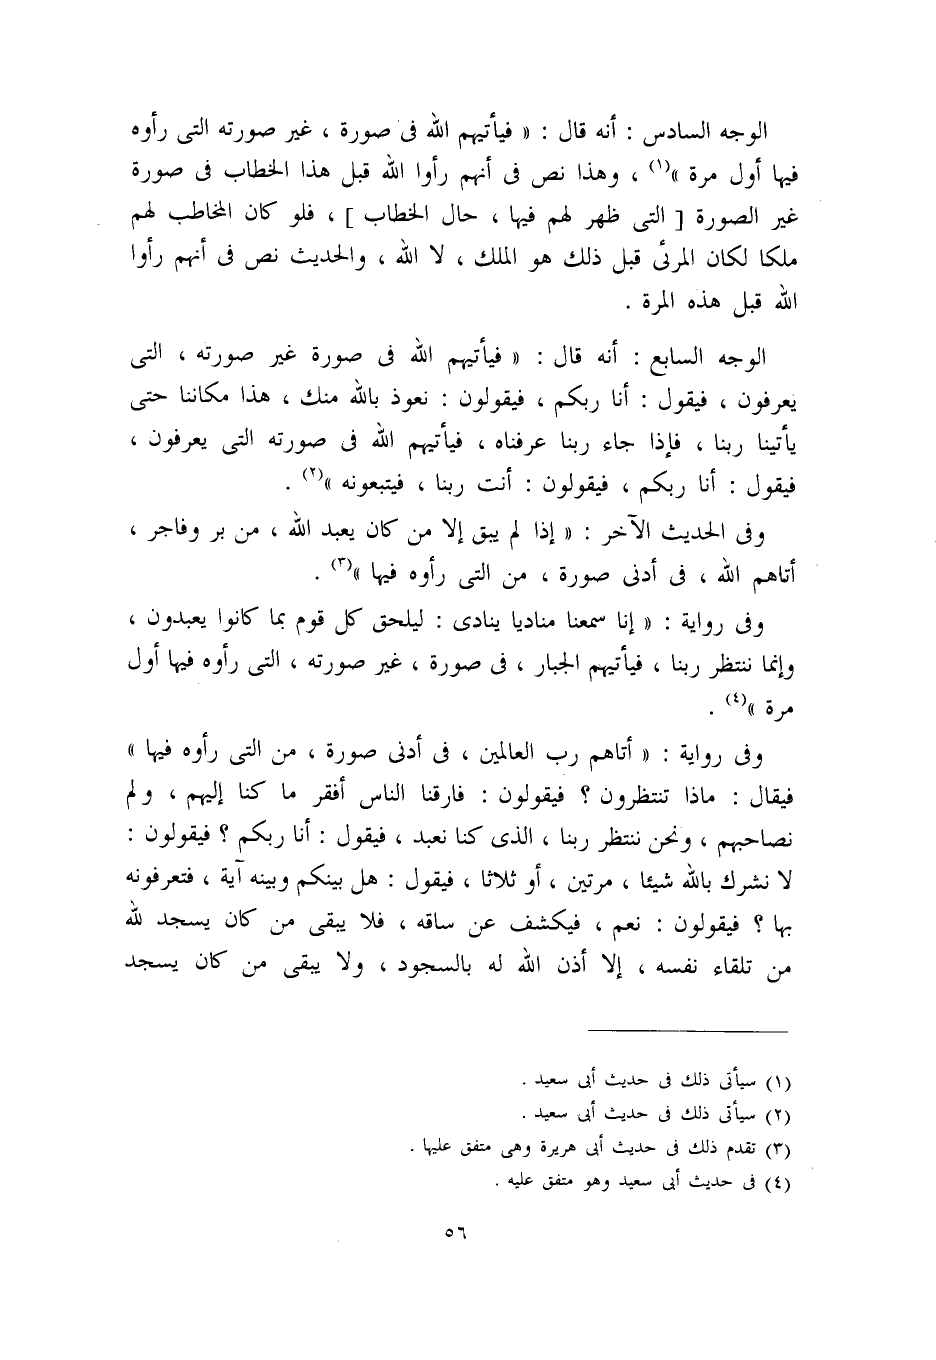 الوجه السادس : أنه قال : « فيأتيهم الله فى صورة ، غير صورته التى رأوه
فيها أول مرة »(١) ، وهذا نص فى أنهم رأوا الله قبل هذا الخطاب فى صورة
غير الصورة [ التى ظهر لهم فيها ، حال الخطاب ] ، فلو كان المخاطب لهم
ملكا لكان المرئى قبل ذلك هو الملك ، لا الله ، والحديث نص فى أنهم رأوا
الله قبل هذه المرة .
الوجه السابع : أنه قال : « فيأتيهم الله فى صورة غير صورته ، التى
يعرفون ، فيقول : أنا ربكم ، فيقولون : نعوذ بالله منك ، هذا مكاننا حتى
يأتينا ربنا ، فإذا جاء ربنا عرفناه ، فيأتيهم الله فى صورته التى يعرفون ،
فيقول : أنا ربكم ، فيقولون : أنت ربنا ، فيتبعونه »(٢) .
وفى الحديث الآخر : « إذا لم يبق إلا من كان يعبد الله ، من بر وفاجر ،
أتاهم الله ، فى أدنى صورة ، من التى رأوه فيها »(٣) .
وفى رواية : « إنا سمعنا مناديا ينادى : ليلحق كل قوم بما كانوا يعبدون ،
وإنما ننتظر ربنا ، فيأتيهم الجبار ، فى صورة ، غير صورته ، التى رأوه فيها أول
مرة »(٤) .
وفى رواية : « أتاهم رب العالمين ، فى أدنى صورة ، من التى رأوه فيها »
فيقال : ماذا تنتظرون ؟ فيقولون : فارقنا الناس أفقر ما كنا إليهم ، ولم
نصاحبهم ، ونحن ننتظر ربنا ، الذى كنا نعبد ، فيقول : أنا ربكم ؟ فيقولون :
لا نشرك بالله شيئا ، مرتين ، أو ثلاثا ، فيقول : هل بينكم وبينه آية ، فتعرفونه
بها ؟ فيقولون : نعم ، فيكشف عن ساقه ، فلا يبقى من كان يسجد لله
من تلقاء نفسه ، إلا أذن الله له بالسجود ، ولا يبقى من كان يسجد
(١) سيأتى ذلك فى حديث أبى سعيد .
(٢) سيأتى ذلك فى حديث أبى سعيد .
(٣) تقدم ذلك فى حديث أبى هريرة وهى متفق عليها .
(٤) فى حديث أبى سعيد وهو متفق عليه .
٥٦